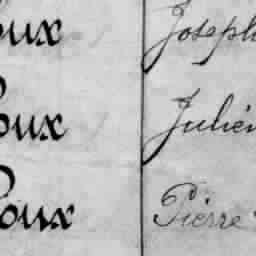 oux Joseph
oux Julien
oux Pierre